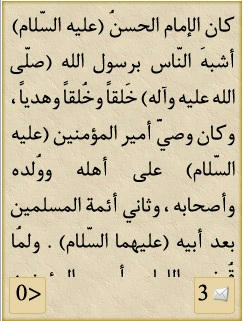 كان الإمام الحسنُ (عليه السّلام)
أشبهَ النّاس برسول الله (صلّى
الله عليه وآله) خَلقاً وخُلقاً وهدياً ،
وكان وصيّ أمير المؤمنين (عليه
السّلام) على أهله ووُلده
وأصحابه ، وثاني أئمة المسلمين
بعد أبيه (عليهما السّلام) . ولمّا
0<
3